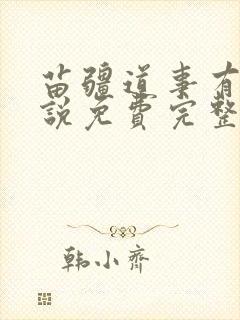 苗疆道事有
說免費完整
韩小齐